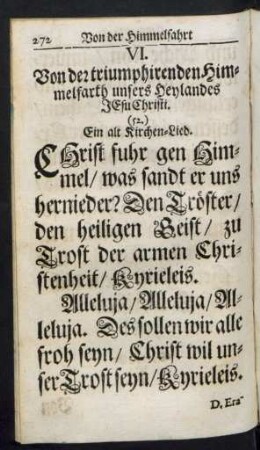 272 Von der Himmelfahrt
VI.
Von der triumphirenden Him-
melfarth unsers Heylandes
JEsu Christi.
(52.)
Ein alt Kirchen-Lied.
CHrist fuhr gen Him-
mel/ was sandt er uns
hernieder? Den Tröster/
den heiligen Geist/ zu
Trost der armen Chri-
stenheit/ Kyrieleis.
Alleluja/ Alleluja/ Al-
leluja. Des sollen wir alle
froh seyn/ Christ wil un-
ser Trost seyn/ Kyrieleis.
D. Era-